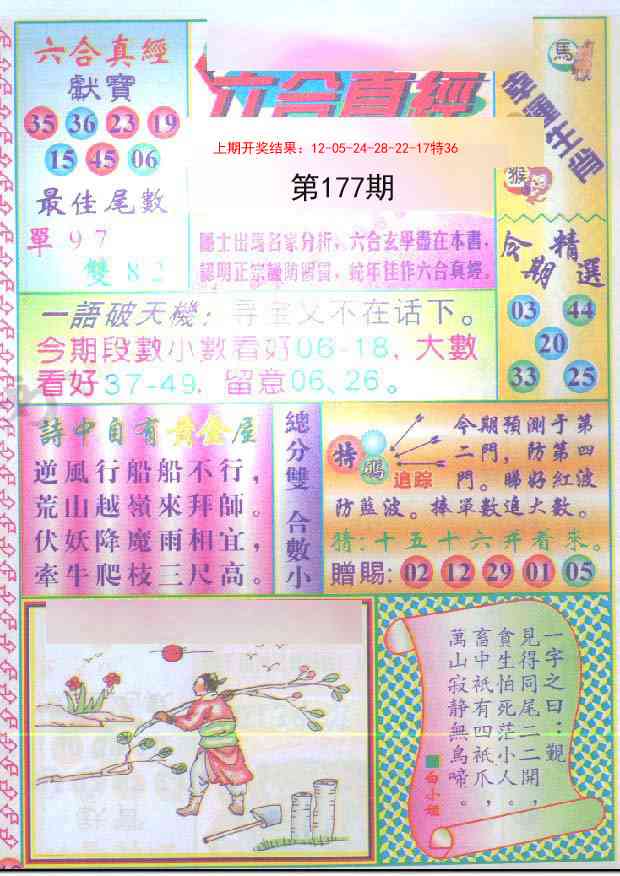 六合真經
獻寶
35 36 23 19
15 45 06
最佳尾數
單97
雙82
六合真經
上期开奖结果：12-05-24-28-22-17特36
第177期
馬
猴
今期精選
03 44
20
33 25
一語破天機：寻宝又不在话下。
今期段數小數看好06-18，大數
看好37-49，留意06、26。
詩中自有黄金屋
逆風行船船不行，
荒山越嶺來拜師。
伏妖降魔雨相宜，
牽牛爬枝三尺高。
總分雙 合數小
特
碼
追踪
今期預測于第
二門，防第四
門。睇好紅波
防藍波。捧單數追大數。
猜：十五十六开看來。
贈賜：02 12 29 01 05
一字之曰：觀
見得同尾二二開，
貪生怕死茫小人，
畜中祇有四祇爪，
萬山寂静無鳥啼。
白小姐